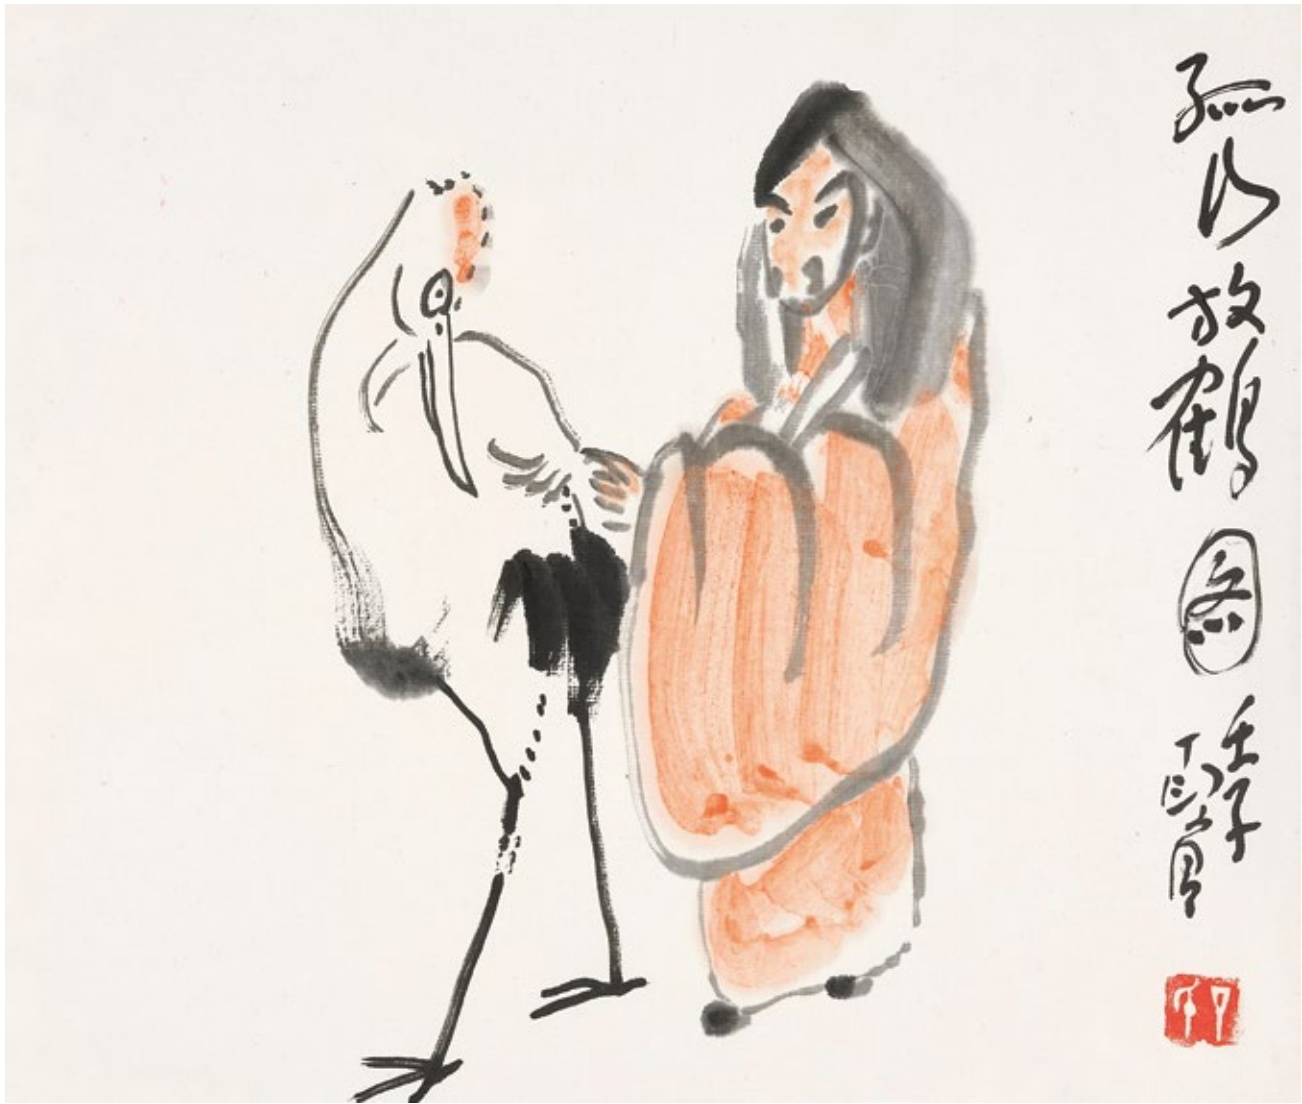 孤山放鶴图
壬子
丁衍庸